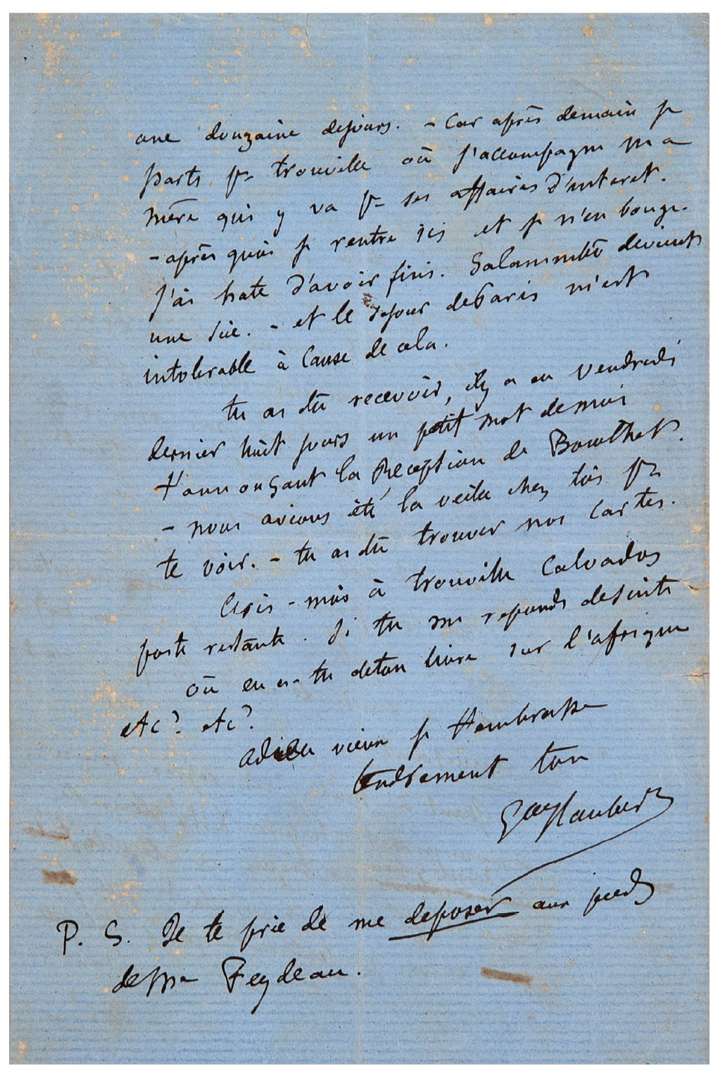 une douzaine de jours. - Car après demain je
parts pr trouville où j'accompagne ma
mère qui y va pr ses affaires d'interet.
- après quoi je rentre ici et je n'en bouge.
J'ai hate d'avoir fini. Salammbô devient
une scie. - et le sejour de paris m'est
intolerable à Cause de cela.
tu as du recevoir, il y a eu Vendredi
dernier huit jours un petit mot de moi
t'annonçant la Réception de Bouilhet.
- nous avions été la veille chez toi pr
te voir. - tu as du trouver nos cartes.
Ecris-moi à trouville Calvados
poste restante. Si tu me reponds de suite
où en es-tu de ton livre sur l'afrique
etc? etc?
adieu vieux je t'embrasse
tendrement ton
Gve Flaubert
P. S. Je te prie de me deposer aux pieds
de Me Feydeau.